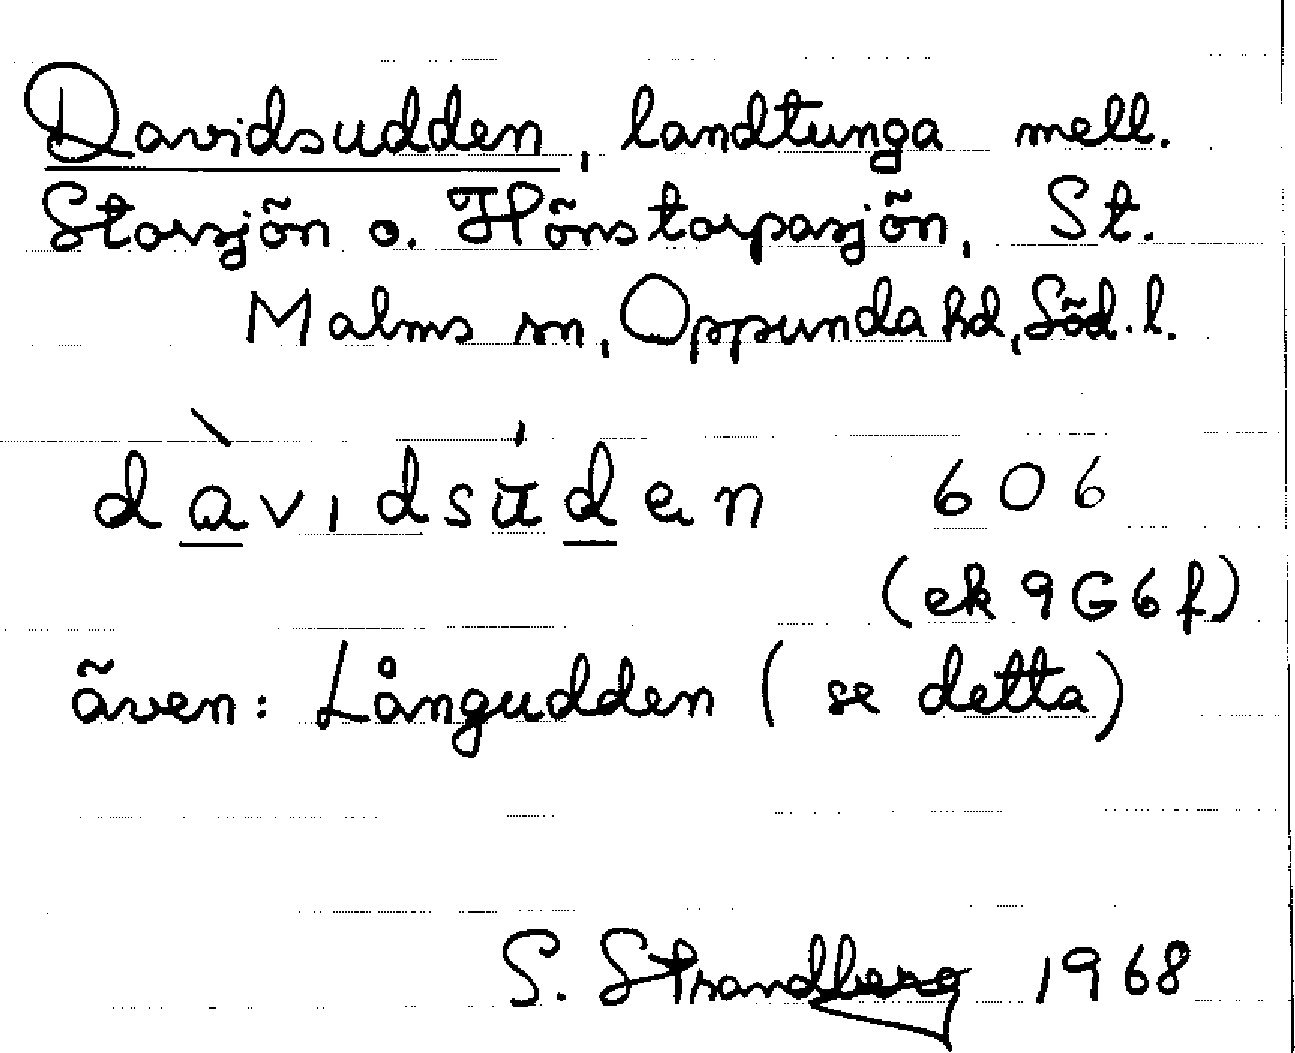 Davidsudden, landtunga mell.
Storsjön o. Hönstorpasjön, St.
Malms sn, Oppunda hd, Söd. l.
dàvıdsu̍den 606
(ek 9G6f)
även: Långudden (se detta)
S. Strandberg 1968